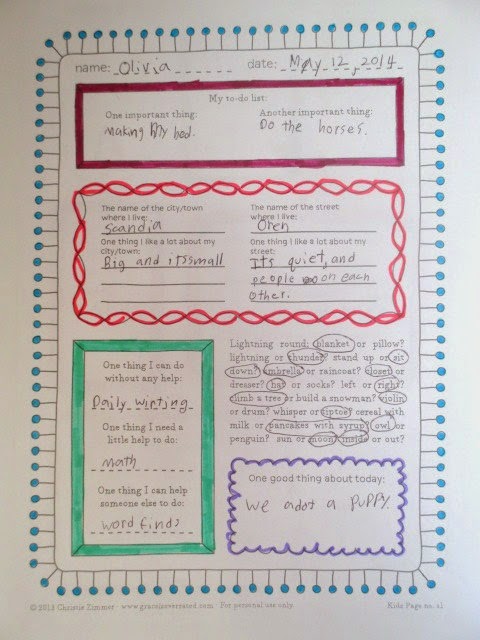 name: Olivia date: May, 12, 2014
My to-do list:
One important thing: Another important thing:
making my bed. Do the horses.
The name of the city/town
where I live:
Scandia
The name of the street
where I live:
Oren
One thing I like a lot about my
city/town:
Big and itssmall
One thing I like a lot about my
street:
Its quiet, and
people on each
other.
One thing I can do
without any help:
Daily wirting
One thing I need a
little help to do:
math
One thing I can help
someone else to do:
word finds
Lightning round: blanket or pillow?
lightning or thunder? stand up or sit
down? umbrella or raincoat? closet or
dresser? hat or socks? left or right?
climb a tree or build a snowman? violin
or drum? whisper or tiptoe? cereal with
milk or pancakes with syrup? owl or
penguin? sun or moon? inside or out?
One good thing about today:
we adot a puppy.
© 2013 Christie Zimmer www.graceisoverrated.com For personal use only. Kids Page no. 21